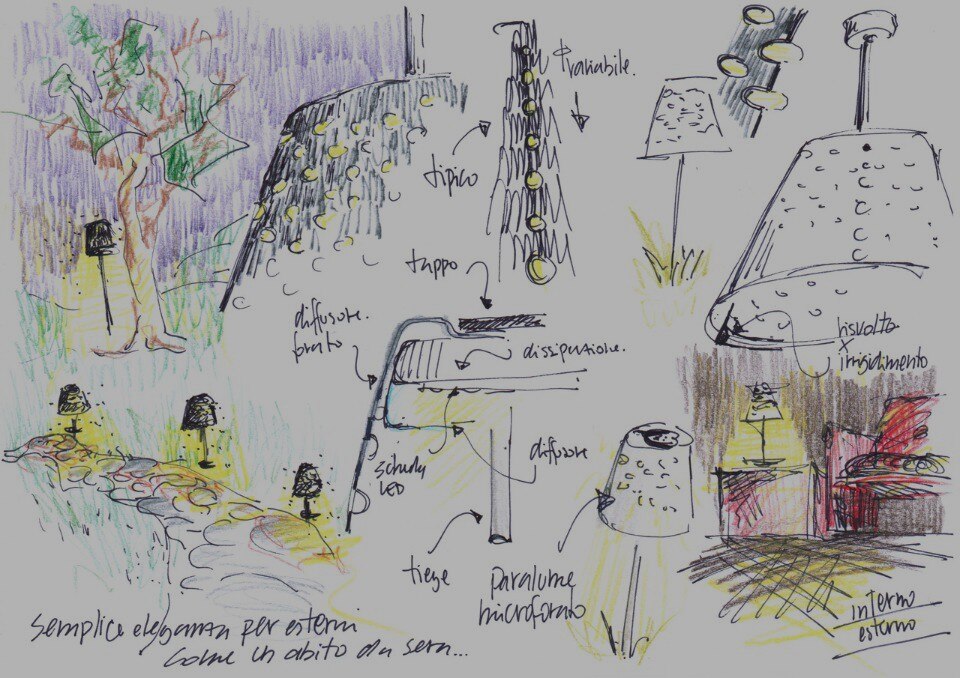 φ variabile.
tipico
tappo
diffusore.
forato
dissipazione.
risvolto
x
irrigidimento
diffusore
scheda
LED
tiege
paralume
microforato
interno
esterno
semplice eleganza per esterni
come un abito da sera...